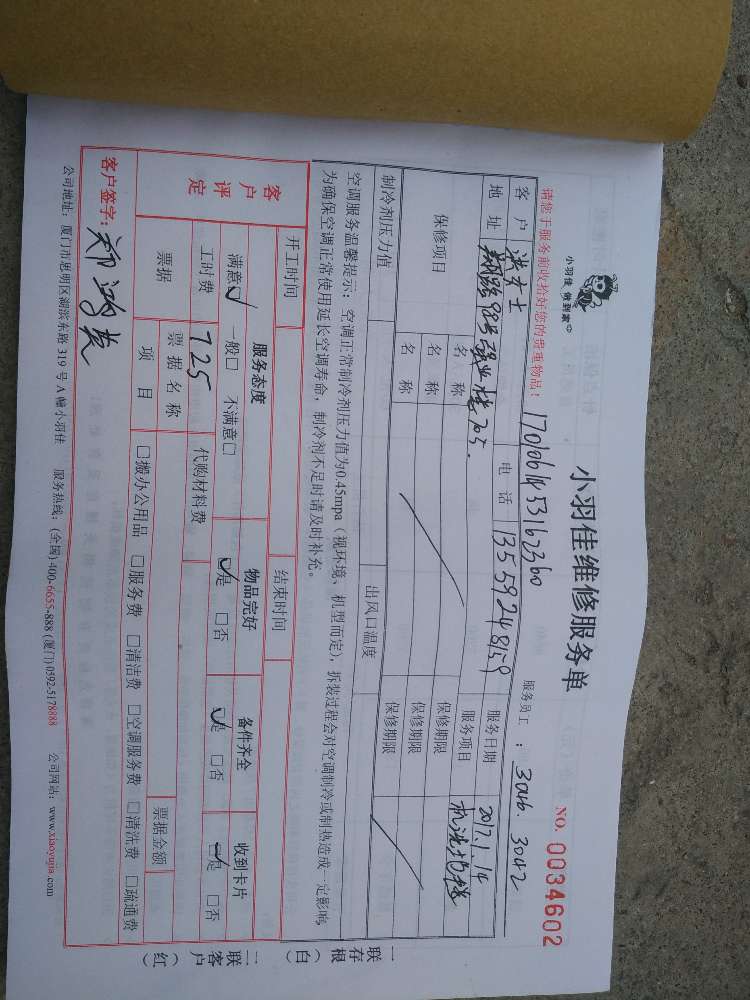 小羽佳
小羽佳 做到家
小羽佳维修服务单
NO. 0034602
请您于服务前收拾好您的贵重物品！
1701061453162360
服务员工：3046. 3042
客户 洪女士 电话 13559248159 服务日期 2017.1.14
地址 98号 705. 服务项目
保修项目 名称 保修期限
名称 保修期限
名称 保修期限
制冷剂压力值 出风口温度
空调服务温馨提示：空调正常制冷剂压力值为0.45mpa（视环境、机型而定），拆装过程会对空调制冷或制热造成一定影响，
为确保空调正常使用延长空调寿命，制冷剂不足时请及时补充。
开工时间 结束时间
客户评定 服务态度 物品完好 备件齐全 收到卡片
满意☑ 一般□ 不满意□ ☑是 □否 ☑是 □否 ☑是 □否
工时费 725 代购材料费
票据 票据名称 票据金额
项目 □搬办公用品 □服务费 □清洁费 □空调服务费 □清洗费 □疏通费
客户签字：郑鸿
公司地址：厦门市思明区湖滨东路 319 号 A 幢小羽佳 服务热线：(全国) 400-6655-888 (厦门) 0592-5178888 公司网站：www.xiaoyujia.com
一联存根（白）
二联客户（红）